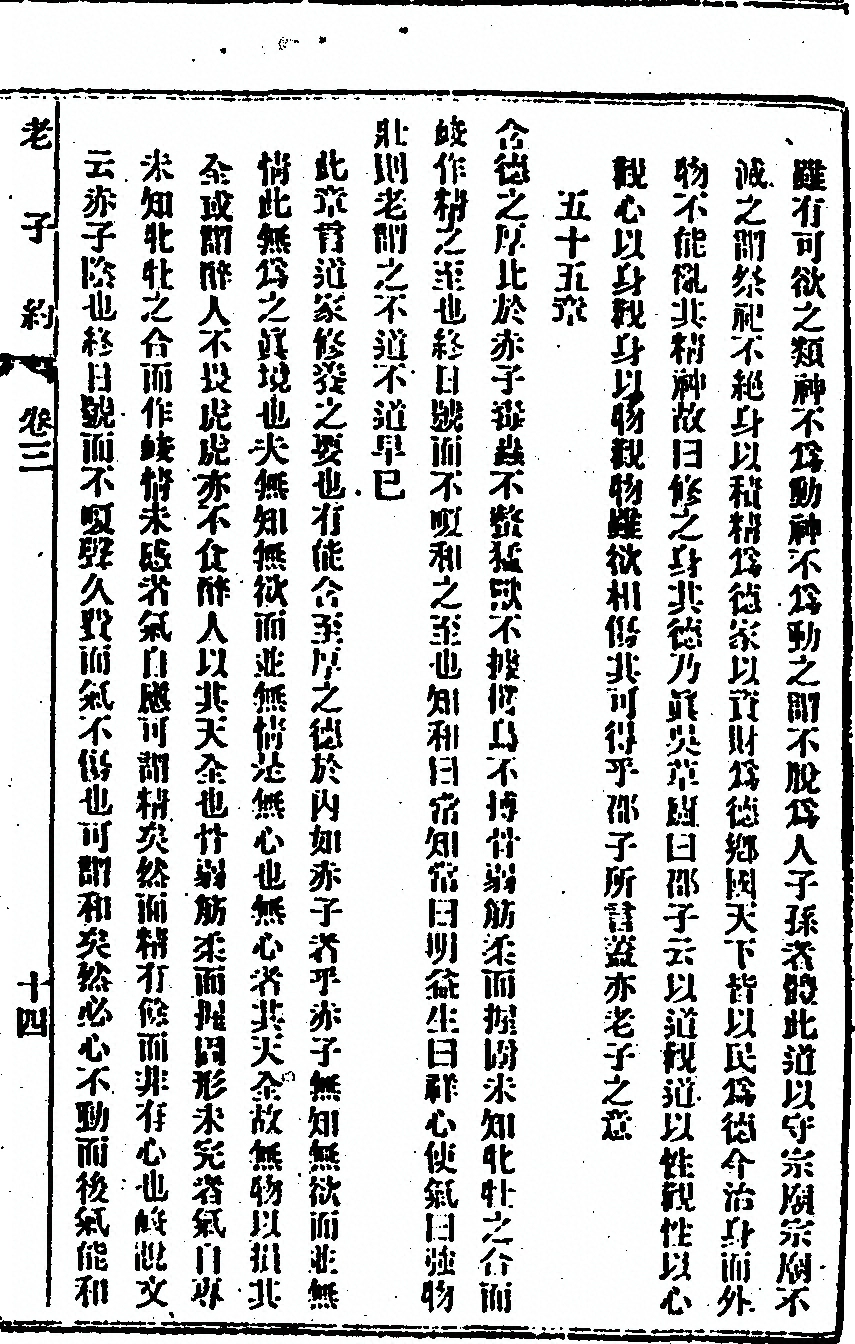 雖有可欲之類神不爲動神不爲動之謂不脫爲人子孫者體此道以守宗廟宗廟不
滅之謂祭祀不絕身以積精爲德家以資財爲德鄉國天下皆以民爲德今治身而外
物不能亂其精神故曰修之身其德乃眞吳草廬曰邵子云以道觀道以性觀性以心
觀心以身觀身以物觀物雖欲相傷其可得乎邵子所言蓋亦老子之意
五十五章
含德之厚比於赤子毒蟲不螫猛獸不據攫鳥不搏骨弱筋柔而握固未知牝牡之合而
峻作精之至也終日號而不嗄和之至也知和曰常知常曰明益生曰祥心使氣曰强物
壯則老謂之不道不道早已
此章言道家修養之要也有能含至厚之德於內如赤子者乎赤子無知無欲而並無
情此無爲之眞境也夫無知無欲而並無情是無心也無心者其天全故無物以損其
全或謂醉人不畏虎虎亦不食醉人以其天全也骨弱筋柔而握固形未完者氣自專
未知牝牡之合而作峻情未感者氣自應可謂精矣然而精有餘而非有心也峻說文
云赤子陰也終日號而不嗄聲久費而氣不傷也可謂和矣然必心不動而後氣能和
老子約
卷三
十四